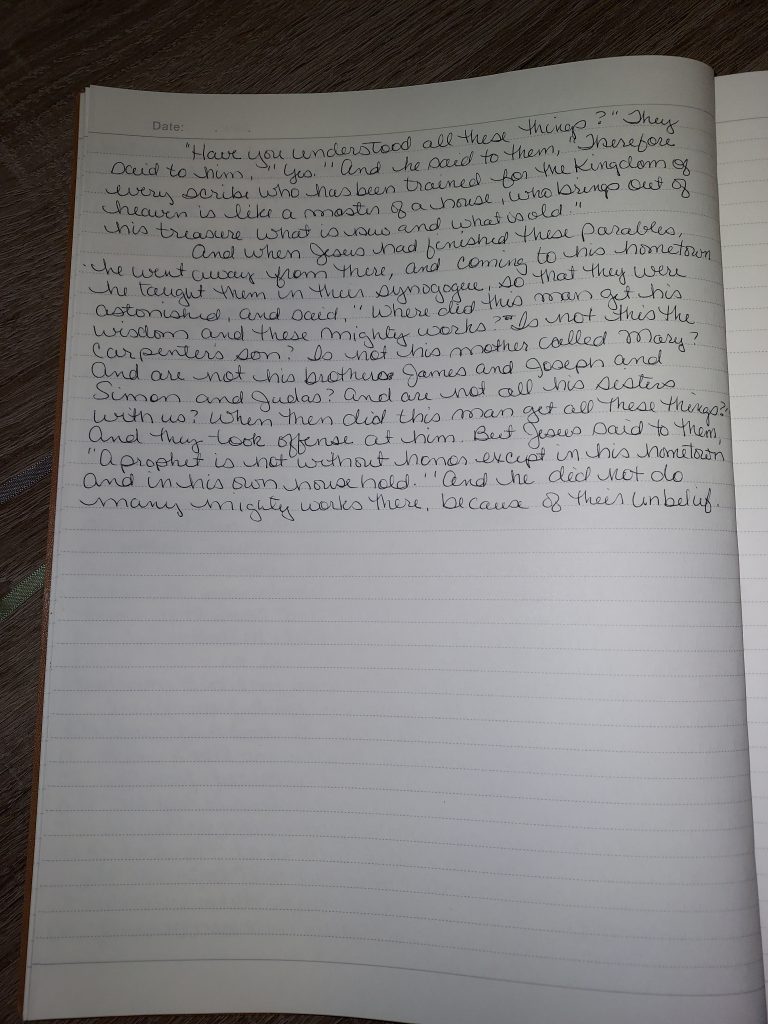 Date:
"Have you understood all these things?" They
said to him, "Yes." And he said to them, "Therefore
every scribe who has been trained for the Kingdom of
heaven is like a master of a house, who brings out of
his treasure what is new and what is old."
And when Jesus had finished these parables,
he went away from there, and coming to his hometown
he taught them in their synogogue, so that they were
astonished, and said, "Where did this man get his
wisdom and these mighty works? Is not this the
Carpenter's son? Is not his mother called Mary?
And are not his brothers James and Joseph and
Simon and Judas? And are not all his sisters
with us? Where then did this man get all these things?"
And they took offense at him. But Jesus said to them,
"A prophet is not without honor except in his hometown
and in his own household." And he did not do
many mighty works there, because of their unbelief.